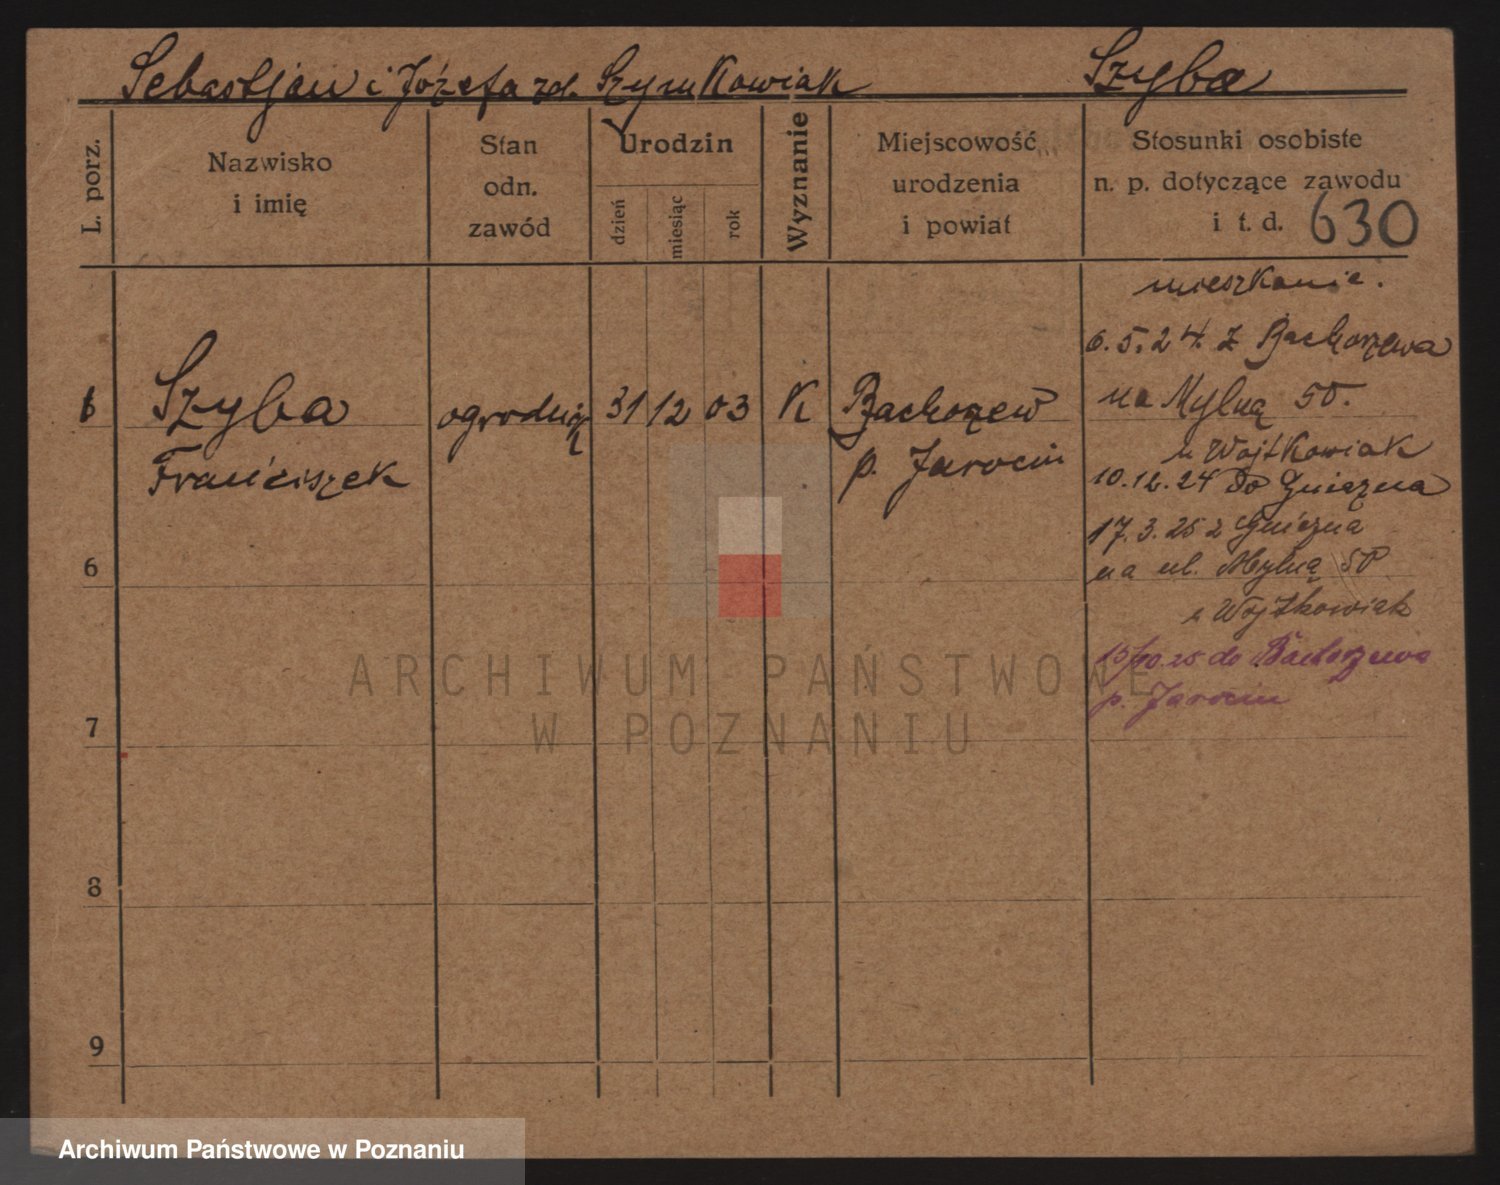 Sebastjan i Józefa zd. Szymkowiak Szyba
L. porz.
Nazwisko
i imię
Stan
odn.
zawód
Urodzin
dzień
miesiąc
rok
Wyznanie
Miejscowość
urodzenia
i powiat
Stosunki osobiste
n. p. dotyczące zawodu
i t. d. 630
mieszkanie.
6.5.24. z Bachorzewa
na Mylną 50.
u Wojtkowiak
10.12.24 do Gniezna
17.3.25 z Gniezna
na ul. Mylną 50
u Wojtkowiak
15/10.25 do Bachorzewa
p. Jarocin
Szyba
Franciszek
ogrodnik
31 12 03
K
Bachorzew
p. Jarocin
6
7
8
9
ARCHIWUM PAŃSTWOWE
W POZNANIU
Archiwum Państwowe w Poznaniu